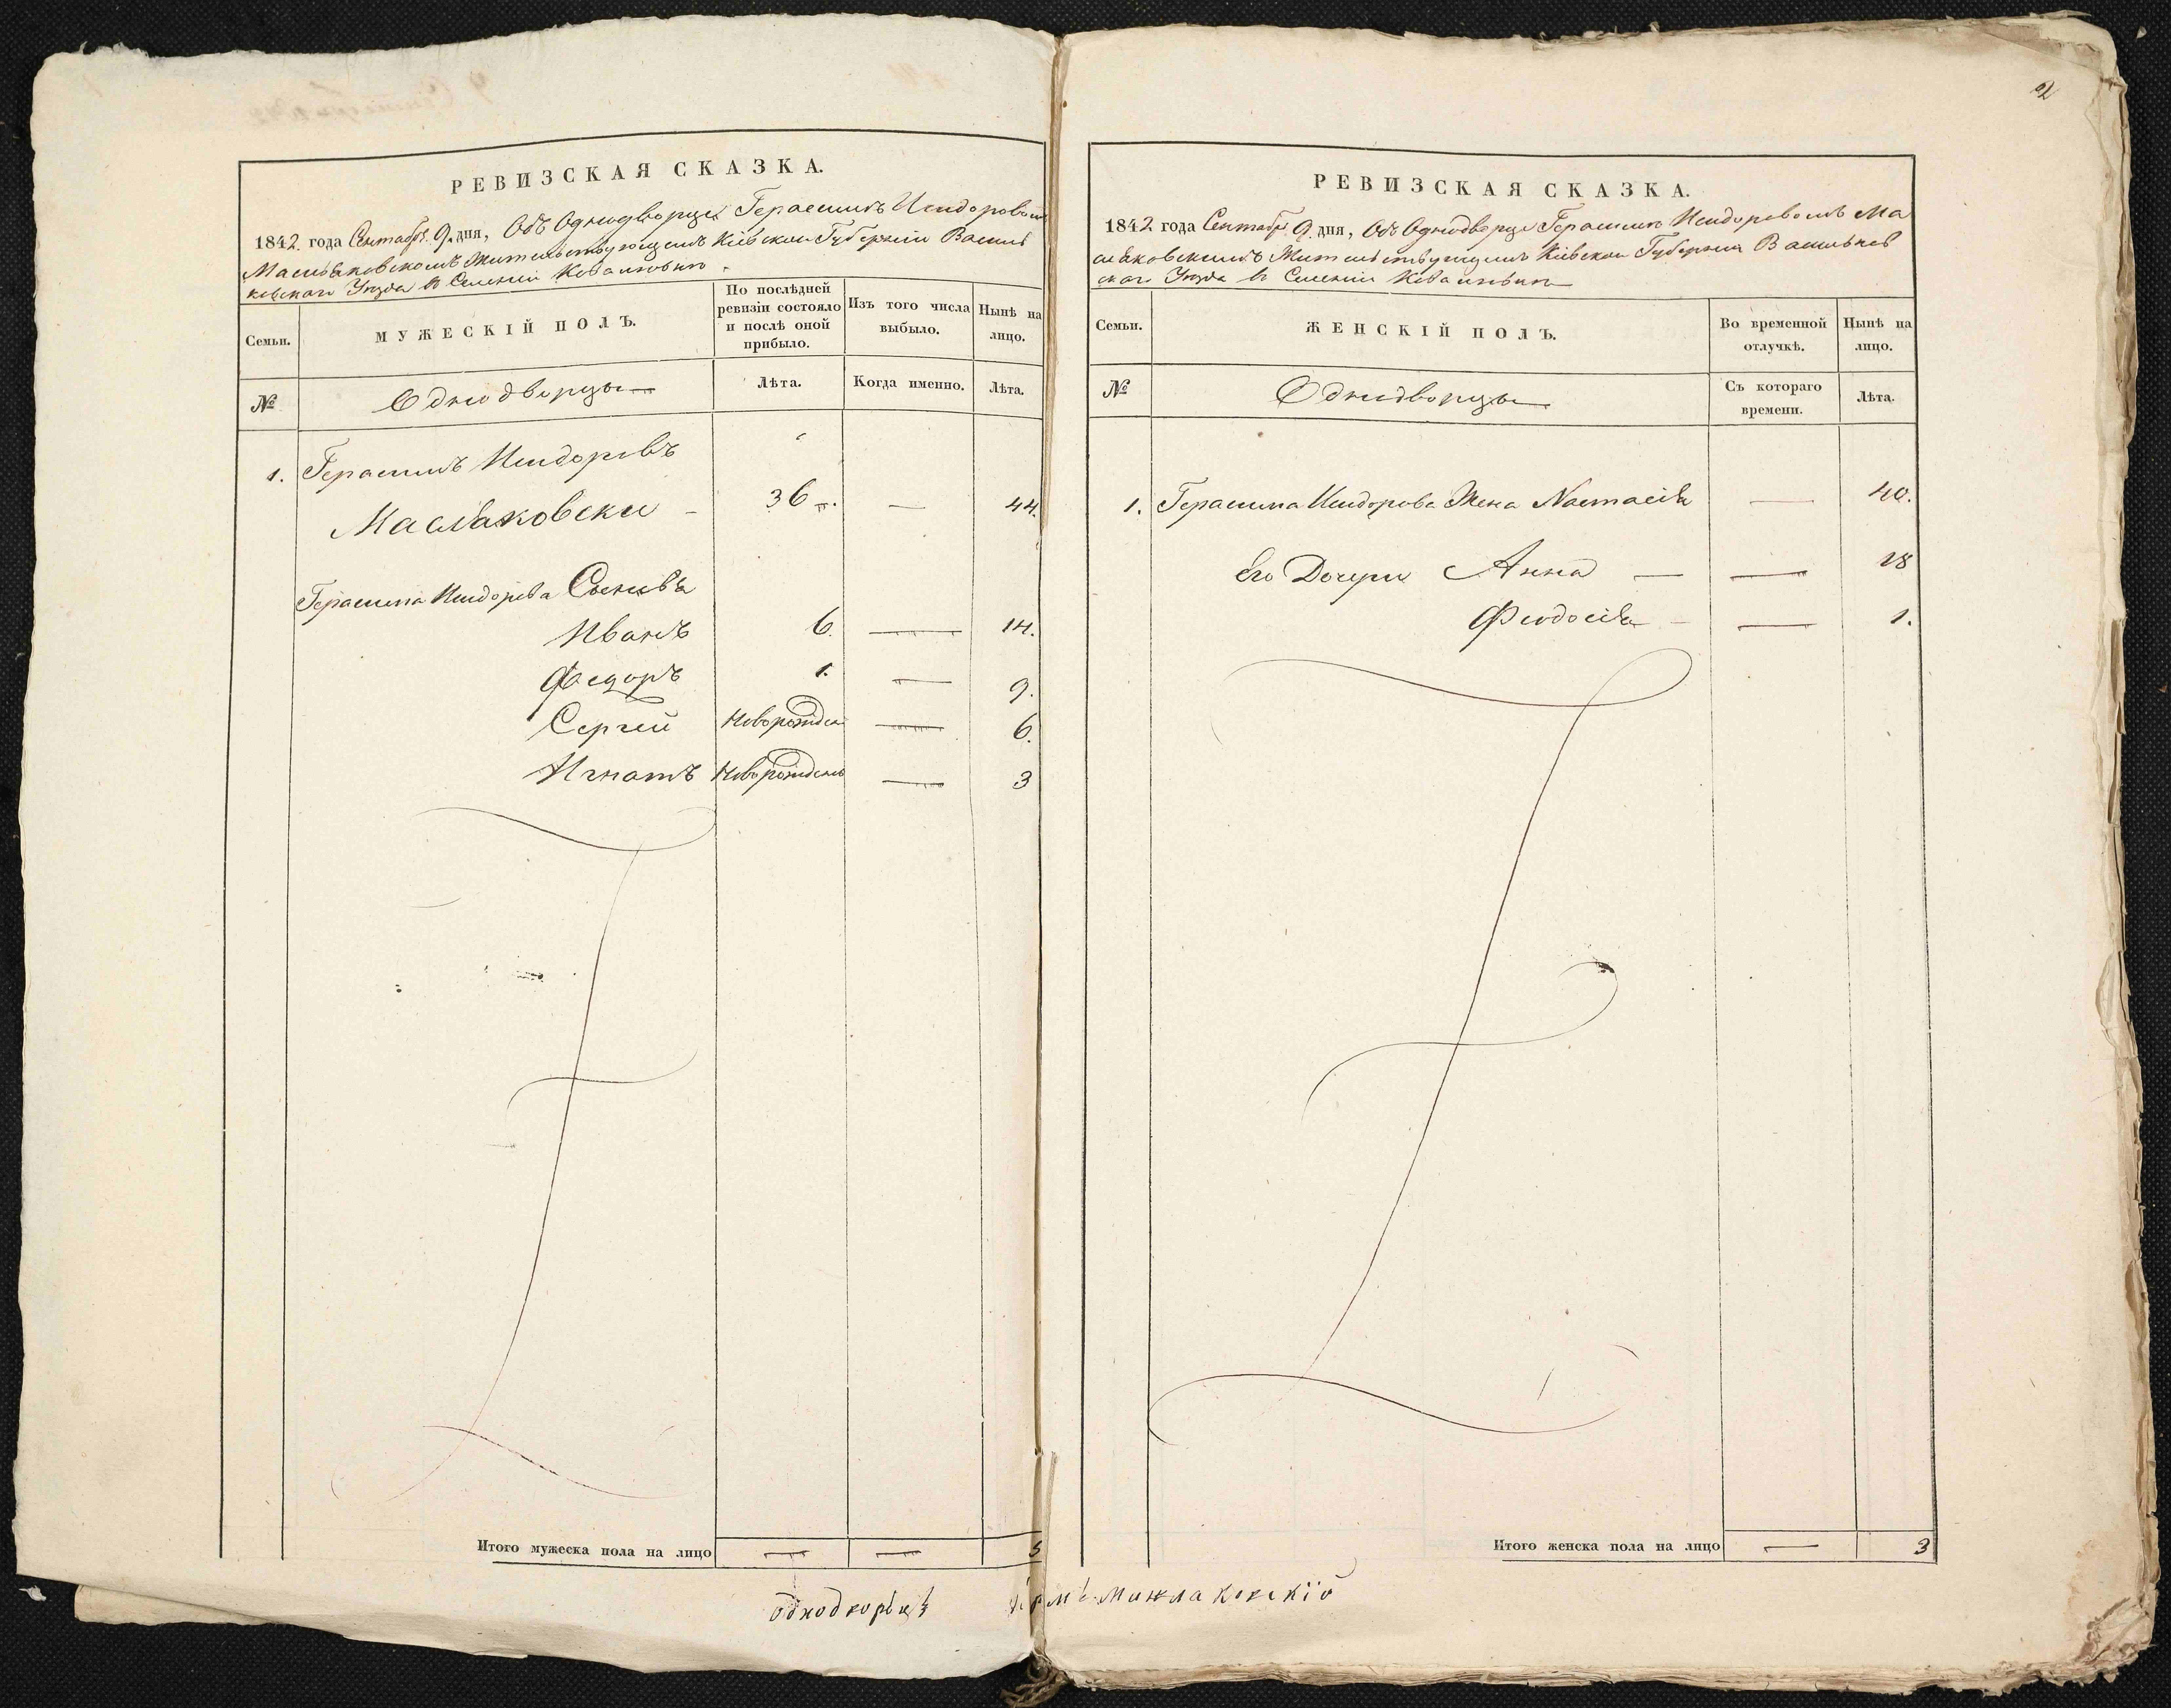 2
РЕВИЗСКАЯ СКАЗКА.
1842 года Сентябр. 9. дня, Объ Однодворце Герасимъ Исидоровомъ
Масльковскомъ Жительствующемъ Кіевской Губерніи Василь
ковскаго Уезда в Селеніи
Семьи.
МУЖЕСКІЙ ПОЛЪ.
По послѣдней ревизіи состояло и послѣ оной прибыло.
Изъ того числа выбыло.
Нынѣ на лицо.
№
Однодворцы
Лѣта.
Когда именно.
Лѣта.
1. Герасимъ Исидоровъ
Масльковски 36 — 44.
Герасима Исидорова Сыновья
Иванъ 6. — 14.
Федоръ 1. — 9.
Сергей Новорожден — 6.
Игнатъ Новорожденъ — 3
Итого мужеска пола на лицо — — 5
РЕВИЗСКАЯ СКАЗКА.
1842 года Сентябр. 9 дня, Объ Однодворце Герасиме Исидоровомъ Ма
сльковскимъ Жительствующемъ Кіевской Губерніи Васильков
скаго Уезда в Селеніи
Семьи.
ЖЕНСКІЙ ПОЛЪ.
Во временной отлучкѣ.
Нынѣ на лицо.
№
Однодворцы
Съ котораго времени.
Лѣта.
1. Герасима Исидорова Жена Настасія — 40.
Его Дочери Анна — — 18
Феодосія — — 1.
Итого женска пола на лицо — 3
однодворецъ